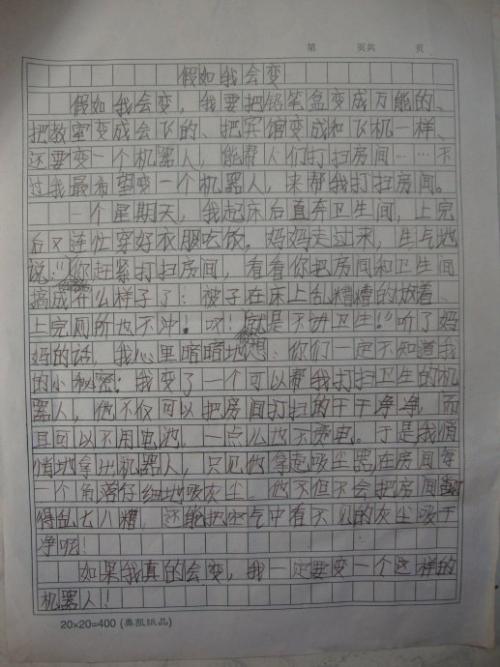 第 页共 页
假如我会变
假如我会变，我要把铅笔盒变成万能的、
把教室变成会飞的、把宾馆变成和飞机一样、
还要变一个机器人，能帮人们打扫房间……不
过我最希望变一个机器人，来帮我打扫房间。
一个星期天，我起床后直奔卫生间，上完
后又连忙穿好衣服吃饭，妈妈走过来，生气地
说：“你赶紧打扫房间，看看你把房间和卫生间
搞成什么样子了：被子在床上乱糟糟的放着、
上完厕所也不冲！哎！就是不讲卫生！”听了妈
妈的话，我心里暗暗地想：你们一定不知道我
的小秘密：我变了一个可以帮我打扫卫生的机
器人，他不仅可以把房间打扫的干干净净，而
且可以不用电池，一点儿也不费电。于是我悄
悄地拿出机器人，只见他拿起吸尘器在房间每
一个角落仔细地吸灰尘。他不但不会把房间
得乱七八糟，还能把空气中看不见的灰尘吸干
净呢！
如果我真的会变，我一定要变一个这样的
机器人！
20×20=400 (奥凯纸品)